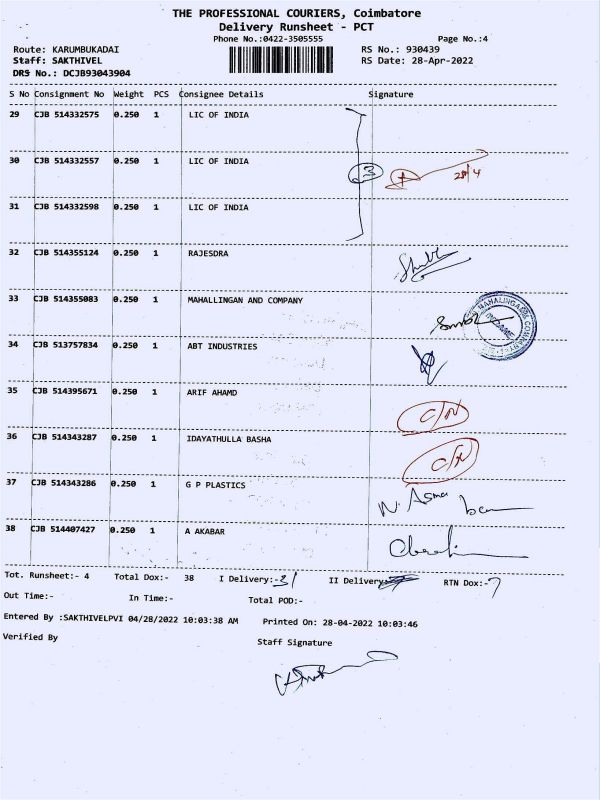 THE PROFESSIONAL COURIERS, Coimbatore
Delivery Runsheet - PCT
Phone No.:0422-3505555 Page No.:4
Route: KARUMBUKADAI RS No.: 930439
Staff: SAKTHIVEL RS Date: 28-Apr-2022
DRS No.: DCJB93043904
S No Consignment No Weight PCS Consignee Details Signature
29 CJB 514332575 0.250 1 LIC OF INDIA
30 CJB 514332557 0.250 1 LIC OF INDIA 3 28/4
31 CJB 514332598 0.250 1 LIC OF INDIA
32 CJB 514355124 0.250 1 RAJESDRA
33 CJB 514355083 0.250 1 MAHALLINGAN AND COMPANY
34 CJB 513757834 0.250 1 ABT INDUSTRIES
35 CJB 514395671 0.250 1 ARIF AHAMD C/N
36 CJB 514343287 0.250 1 IDAYATHULLA BASHA C/N
37 CJB 514343286 0.250 1 G P PLASTICS N. Asma
38 CJB 514407427 0.250 1 A AKABAR
Tot. Runsheet:- 4 Total Dox:- 38 I Delivery:-31 II Delivery:- RTN Dox:-7
Out Time:- In Time:- Total POD:-
Entered By :SAKTHIVELPVI 04/28/2022 10:03:38 AM Printed On: 28-04-2022 10:03:46
Verified By Staff Signature